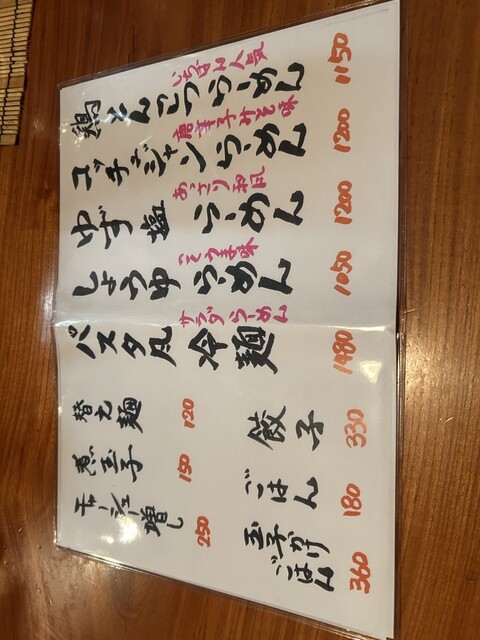 いちばん人気
鶏とんこつらーめん 1150
唐辛子みそ味
コッチュジャンらーめん 1200
あっさり和風
ゆず塩らーめん 1200
こくうま味
しょうゆらーめん 1050
サラダらーめん
パスタ風冷麺 1480
替え麺 120
煮玉子 150
チャーシュー増し 250
餃子 330
ごはん 180
玉子かけごはん 360